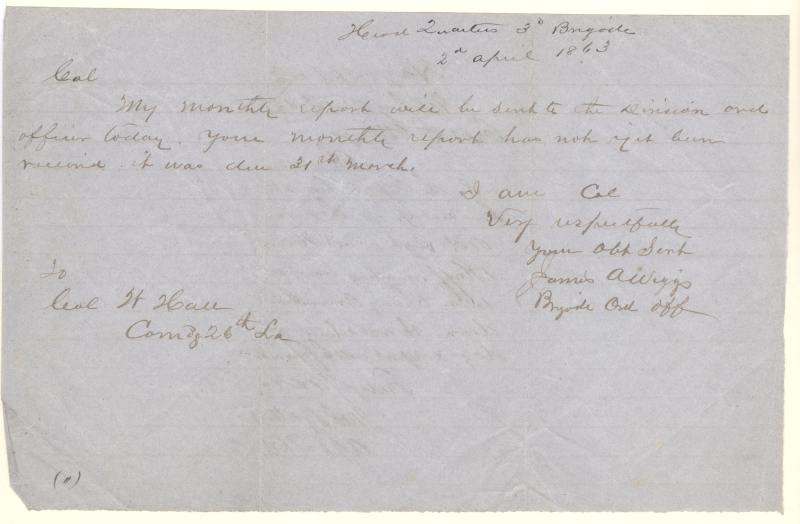 Head Quarters 3d Brigade
2nd april 1863
Col
My monthly report will be sent to the Division ord
officer today. Your monthly report has not yet been
received. it was due 31st March.
I am Col
Very respectfully
Your Obt Servt
James A Wiggs
Brigade Ord off
To
Col W Hall
Comdg 26th La
(11)